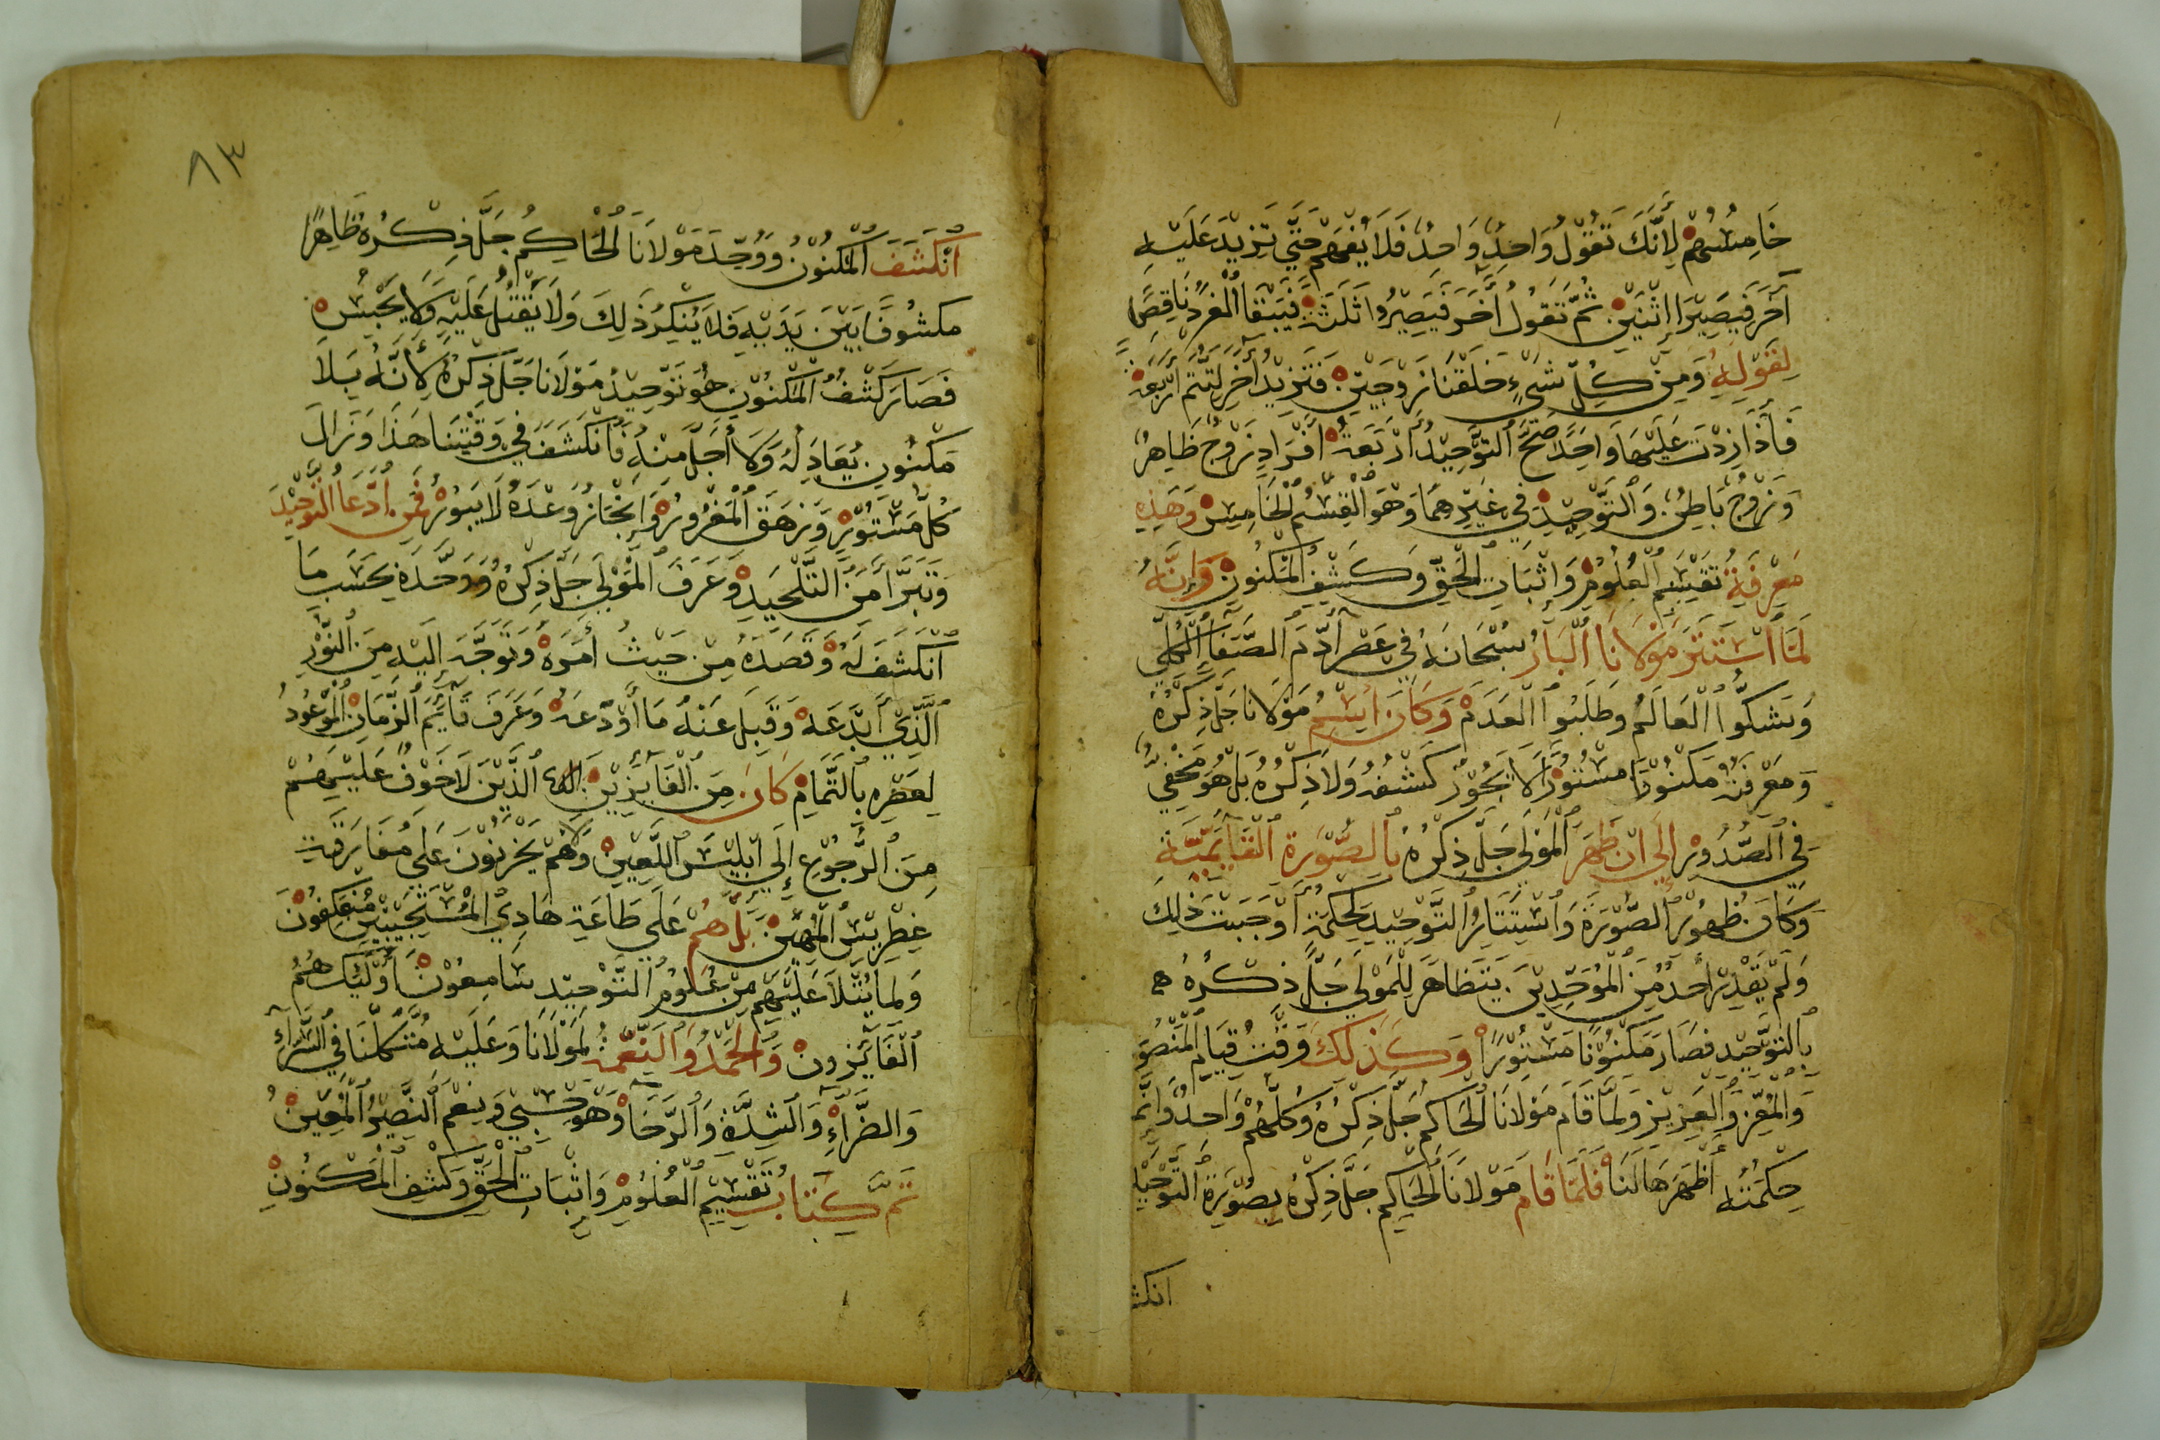 خَامِسُهُمْ لِأَنَّكَ تَقُوْلُ وَاحِدُ وَاحِدُ فَلَا يُفْهَمْ حَتَّي تَزِيْدَ عَلَيْهِ
آخَرَ فَيَصِيْرَا اثْنَيْنِ ثُمَّ تَقُوْلُ أَخَرَ فَيَصِيْرُوا ثَلَثَةْ فَيَبْقَا الْفَرْدُ نَاقِصًا
لِقَوْلِهِ وَمِنْ كُلِّ شَيْءٍ خَلَقْنَا زَوْجَيْنِ فَتَزِيْدُ أَخَرَ لِتَتِمَّ أَرْبَعَةْ
فَأِذَا زِدْتَ عَلَيْهَا وَاحِدًا صَحَّ التَّوْحِيْدُ أَرْبَعَةُ أَفْرَادٍ زَوْجُ ظَاهِرُ
وَزَوْجُ بَاطِنُ وَالتَّوْحِيْدُ فِي غَيْرِهِمَا وَهْوَ الْقِسْمُ الْخَامِسْ وَهَذِهِ
مَعْرِفَةُ تَقْسِيْمِ الْعُلُوْمِ وَاثْبَاتِ الْحَقِّ وَكَشْفِ الْمَكْنُونِ وَإِنَّهُ
لَمَّا اسْتَتَرَ مَوْلَانَا الْبَارُ سُبْحَانَهُ فِي عَصْرِ أَدَمَ الصَّفَا الْكُلِّي
وَشَكُّوا الْعَالَمُ وَطَلَبُوا الْعَدَمْ وَكَانَ اِسْمُ مَوْلَانَا جَلَّ ذِكْرُهُ
وَمَعْرِفَتُهْ مَكْنُوْنًا مَسْتُوْرًا لَا يَجُوْزُ كَشْفُهُ وَلَا ذِكْرُهُ بَلْ هُوَ مَخْفِيٌ
فِي الصُّدُوْرِ إِلَي أنْ ظَهَرَ الْمَوْلَي جَلَّ ذِكْرُهُ بِالصُّوْرَةِ الْقَايِمِيَّةِ
وَكَانَ ظُهُوْرُ الصُّوْرَةِ وَاسْتِتَارُ التَّوْحِيْدِ لِحِكْمَةُ أَوْجَبَتْ ذَلِكَ
وَلَمْ يَقْدِرْ أَحَدٌ مِّنَ الْمُوَحِّدِيْنَ يَتَظَاهَرُ لِلْمَوْلَي جَلَّ ذِكْرُهُ
بِالتَّوْحِيْدِ فَصَارَ مَكْنُوْنًا مَسْتُوْرًا وَكَذَلِكَ وَقْتُ قِيَامِ الْمَنْصُوْ
وَالْمُعِزِّ وَالْعَزِيْزِ وَلَمَّا قَامَ مَوْلَانَا الْحَاكِمُ جَلَّ ذِكْرُهُ وَكُلُّهُمْ وَاحِدُ وَانَّمَ
حِكْمَتُهُ أَظْهَرَهَا لَنَا فَلَمَّا قَامَ مَوْلَانَا الْحَاكِمُ جَلَّ ذِكْرُهُ بِصُوْرَةِ التَّوْحِيْدِ
انكش
٨٣
اُنْكَشَفَ الْمَكْنُوْنُ وَوُحِّدَ مَوْلَانَا الْحَاكِمُ جَلَّ ذِكْرُهُ ظَاهِرًا
مَكْشُوْفًا بَيْنَ يَدَيْهِ فَلَا يُنْكِرُ ذَلِكَ وَلَا يَقْتُلُ عَلَيْهِ وَلَا يَحْبِسُ
فَصَارَ كَشْفُ الْمَكْنُوْنِ هُوَ تَوْحِيْدُ مَوْلَانَا جَلَّ ذِكْرُهُ لِأَنَّهُ بِلَا
مَكْنُونٍ يُعَادِلُهُ وَلَا أَجَلَّ مِنْهُ فَانْكَشَفَ فِي وَقْتِنَا هَذَا وَزَالَ
كُلُّ مَسْتُوْرٍ وَزَهَقَ الْمَغْرُوْرُ وَانْجَازُ وَعْدَهُ لَا يَبُوْرُ فَمَنِ ادَّعَا التَّوْحِيْدَ
وَتَبَرَّأَ مِنَ التَّلْحِيْدِ وَعَرَفَ الْمَوْلَي جَلَّ ذِكْرُهُ وَوَحَّدَهُ بِحَسَبِ مَا
انْكَشَفَ لَهُ وَقَصَدَهُ مِنْ حَيْثُ أَمَرَهُ وَتَوَجَّهَ إِلَيْهِ مِنَ النُّوْرِ
الَّذِيْ أَبْدَعَهُ وَقَبِلَ عَنْهُ مَا أَوْدَعَهُ وَعَرَفَ قَايِمَ الزَّمَانِ الْمَوْعُوْدُ
لِعَصْرِهِ بِالتَّمَامِ كَانَ مِنَ الْفَايِزِيْنَ الَّذِيْنَ لَا خَوْفٌ عَلَيْهِمْ
مِنَ الرُّجُوْعِ إِلَي أَبْلِيْسَ اللَّعِيْنِ وَلَا هُمْ يَحْزَنُوْنَ عَلَي مُفَارَقَةِ
غِطْرِيْسِ الْمُهِيْنِ بَلْ هُمْ عَلَي طَاعَةِ هَادِيْ الْمُسْتَجِيْبِيْنَ مُنْعَكِفُوْنَ
وَلِمَا يُتْلَا عَلَيْهِمْ مِنْ عُلُوْمِ التَّوْحِيْدِ سَامِعُوْنَ أُوْلَيِكَ هُمُ
الْفَايِزُونَ وَالْحَمْدُ وَالنِّعْمَةُ لِمَوْلَانَا وَعَلَيْهِ مُتَّكَلُنَا فِي السَّرَّآءِ
وَالضَّرَّآءِ وَالشِّدَّةِ وَالرَّخَا وَهْوَ حَسْبِي وَنِعْمَ النَّصِيْرُ الْمُعِيْنُ
تَمَّ كِتَابُ تَقْسِيْمِ الْعُلُوْمِ وَاثْبَاتِ الْحَقِّ وَكَشْفِ الْمَكْنُونِ